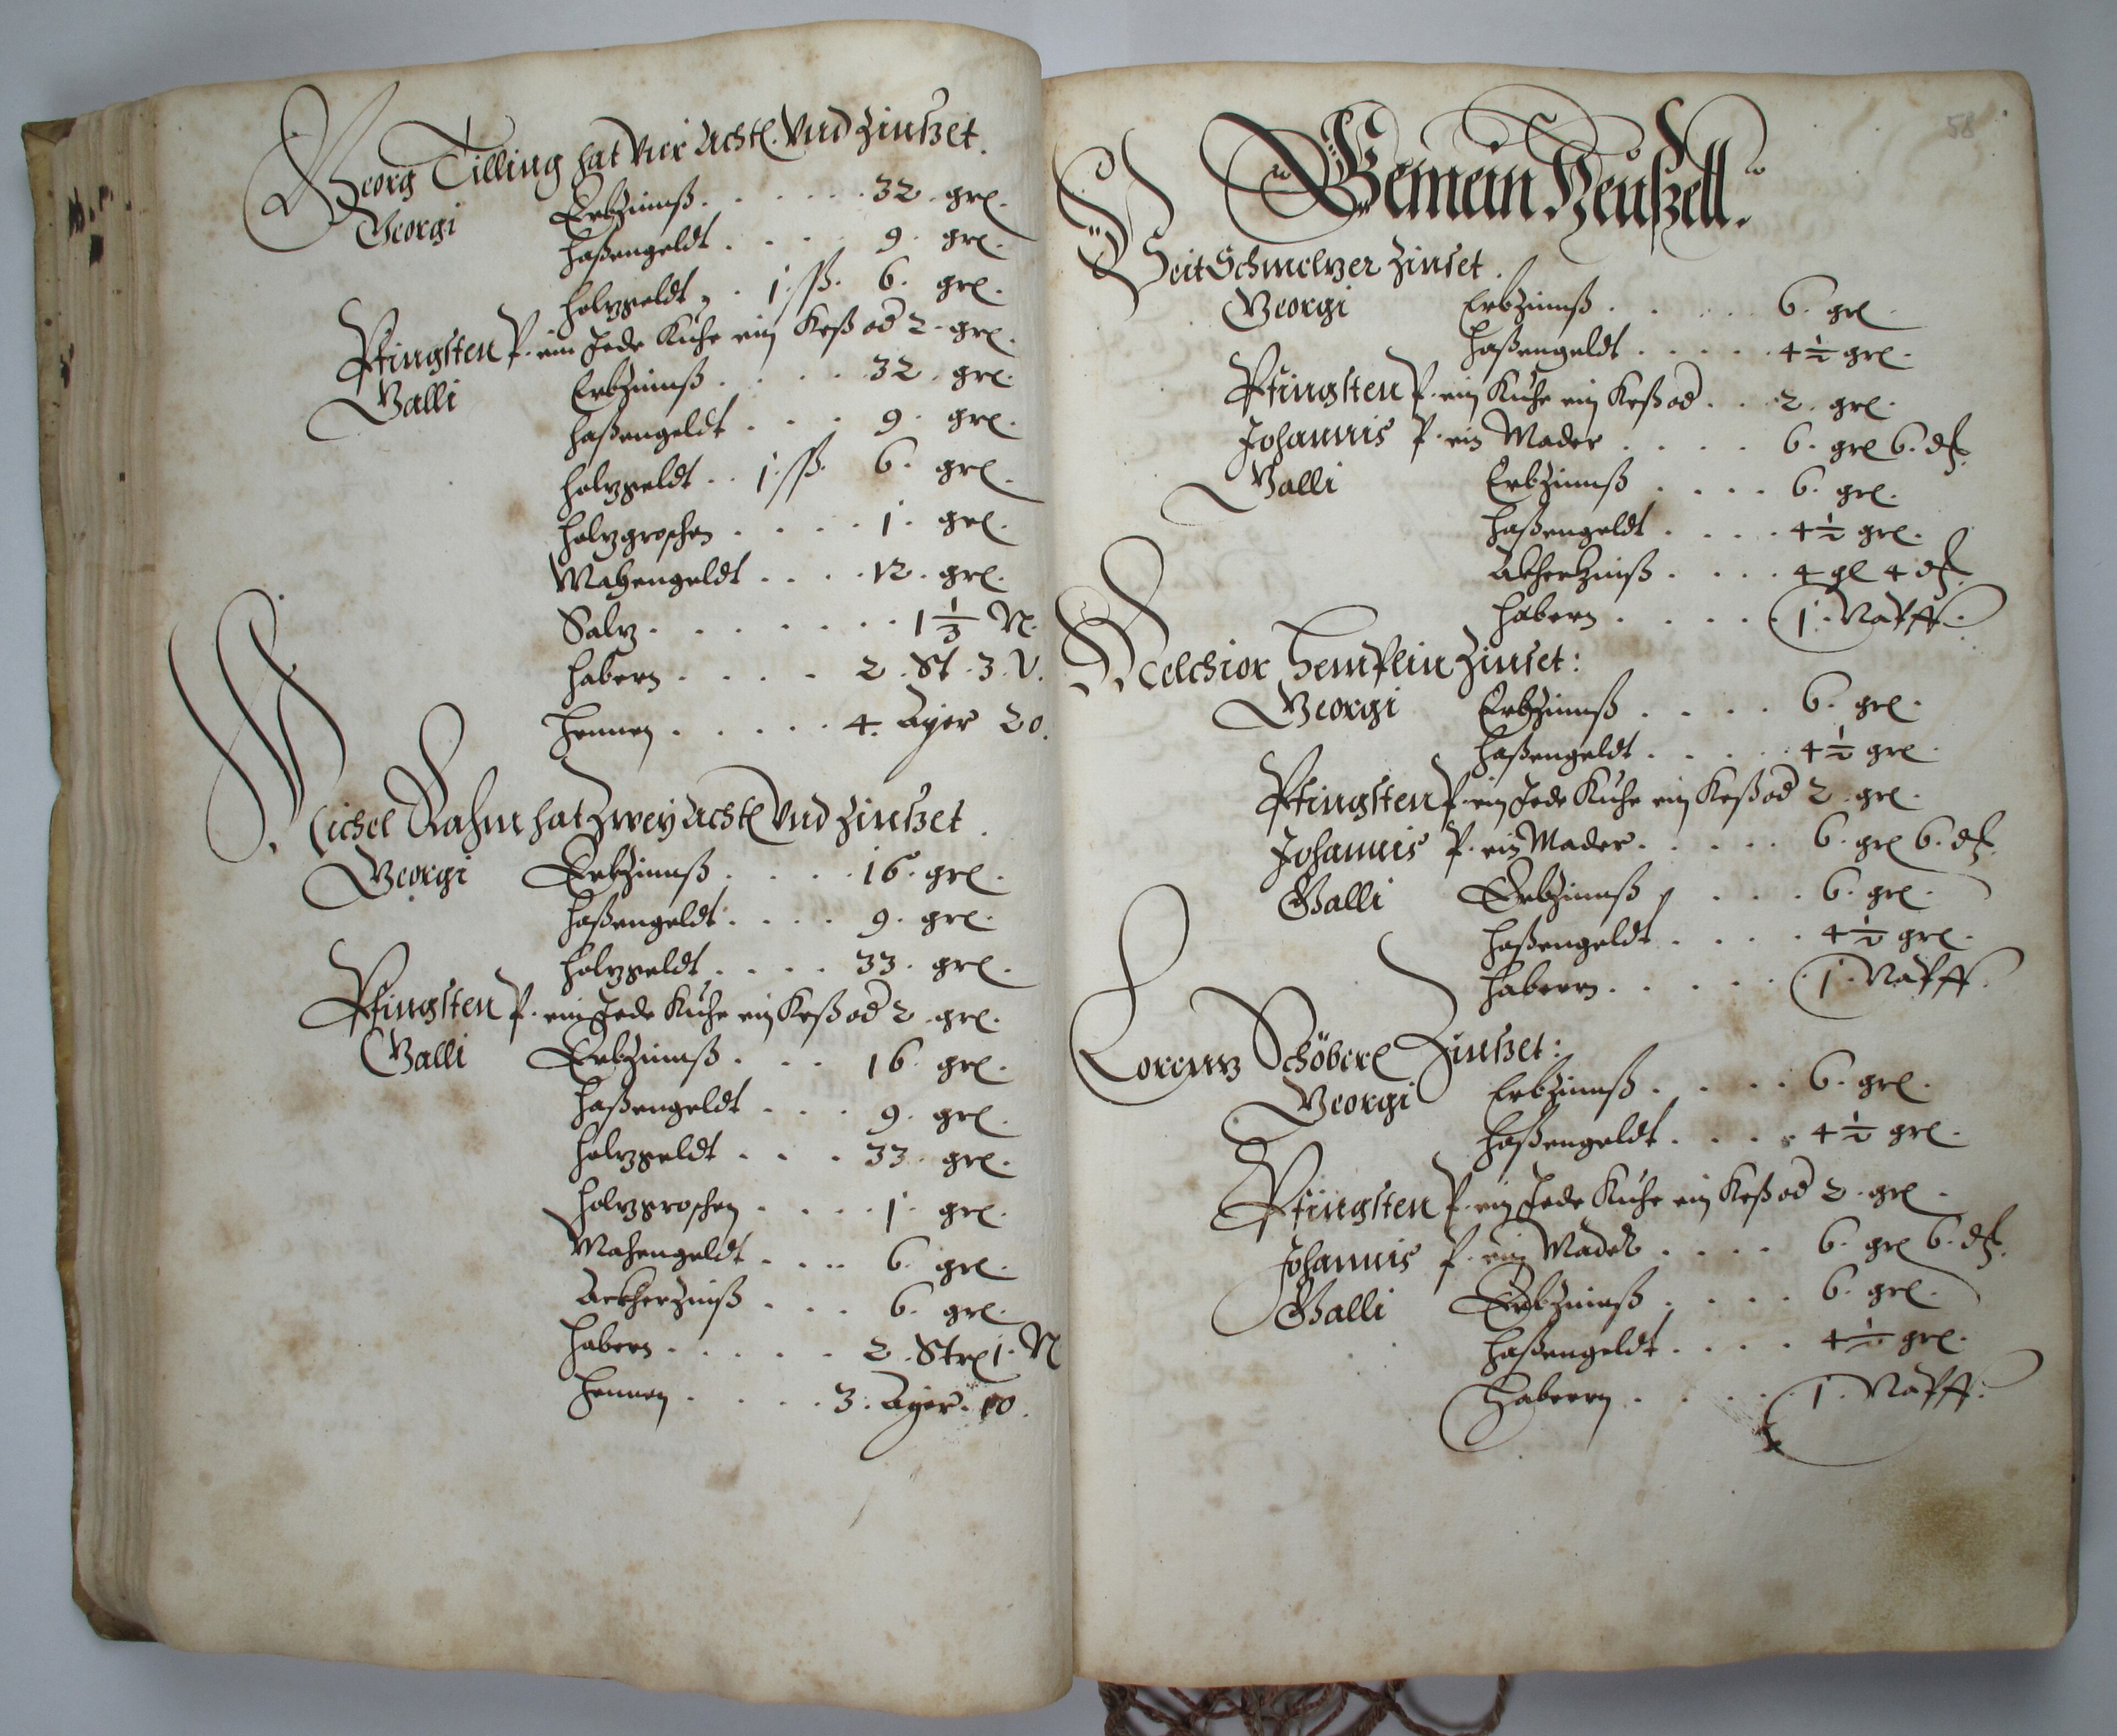 Georg Tilling hat vier Achtl. Vnd Zinßet.
Georgi Erbzinnß . . . . . . 32. grl.
haßengeldt . . . . 9. grl.
holzgeldt . 1. ßß. 6. grl.
Pfingsten P. ein Jede Kuhe ein Keß od 2. grl.
Galli Erbzinnß . . . . 32. grl.
haßengeldt . . . 9. grl.
holzgeldt . . 1. ßß. 6. grl.
holzgroschen . . . . 1. grl.
Mahengeldt . . . . 12. grl.
Salz . . . . . . . 1 1/3 N.
habern . . . . 2. St. 3. V.
Hennen . . . . . 4. Ayer 20.
Michel Rahm hat Zwey Achtl Vnd Zinßet.
Georgi Erbzinnß . . . . 16. grl.
haßengeldt . . . . 9. grl.
holzgeldt . . . . 33. grl.
Pfingsten P. ein Jede Kuhe ein Keß od 2. grl.
Galli Erbzinnß . . . 16. grl.
haßengeldt . . . 9. grl.
holzgeldt . . . 33. grl.
holzgroschen . . . . 1. grl.
Mahengeldt . . . 6. grl.
Ackherzinß . . . 6. grl.
habern . . . . . 2. Strl 1. N
Hennen . . . . 3. Ayer. 10.
58
Gemein Neußell.
Veit Schmelzer Zinset.
Georgi Erbzinnß . . . . . 6. grl
haßengeldt . . . . . 4 1/2 grl.
Pfingsten P. ein Kuhe ein Keß od . . 2. grl.
Johannis P. ein Mader . . . . 6. grl 6. d.
Galli Erbzinnß . . . . 6. grl.
haßengeldt . . . . 4 1/2 grl.
Akherzinß . . . . 4 gl 4 d.
habern . . . . . 1. Näpff.
Melchior Hemplein Zinset:
Georgi Erbzinnß . . . . 6. grl.
haßengeldt . . . . . 4 1/2 grl.
Pfingsten P. ein Jede Kuhe ein Keß od 2. grl.
Johannis P. ein Mader . . . . . 6. grl 6. d.
Galli Erbzinnß . . . . 6. grl.
haßengeldt . . . . 4 1/2 grl.
habern . . . . . 1. Näpff.
Lorenz Schöberl Zinßet:
Georgi Erbzinnß . . . . 6. grl.
haßengeldt . . . . 4 1/2 grl.
Pfingsten P. ein Jede Kuhe ein Keß od 2. grl.
Johannis P. ein Mader . . . . 6. grl 6. d.
Galli Erbzinnß . . . . 6. grl.
haßengeldt . . . . 4 1/2 grl.
Habern . . . . 1. Näpff.